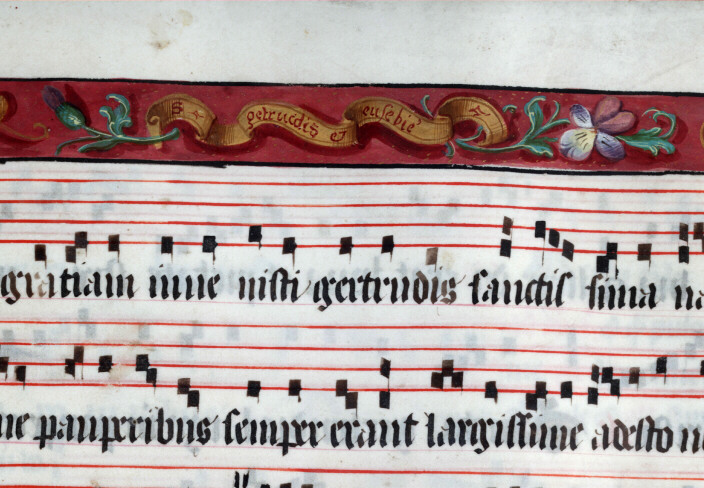 S petrucdis et eusebie
gratiam inue nisti gertrudis sanctis sima na
ne pauperibus semper erant largissime adesto n